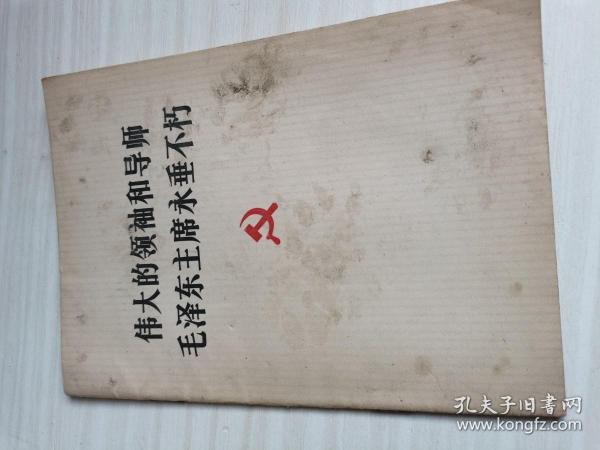 伟大的领袖和导师
毛泽东主席永垂不朽
孔夫子旧書网
www.kongfz.com